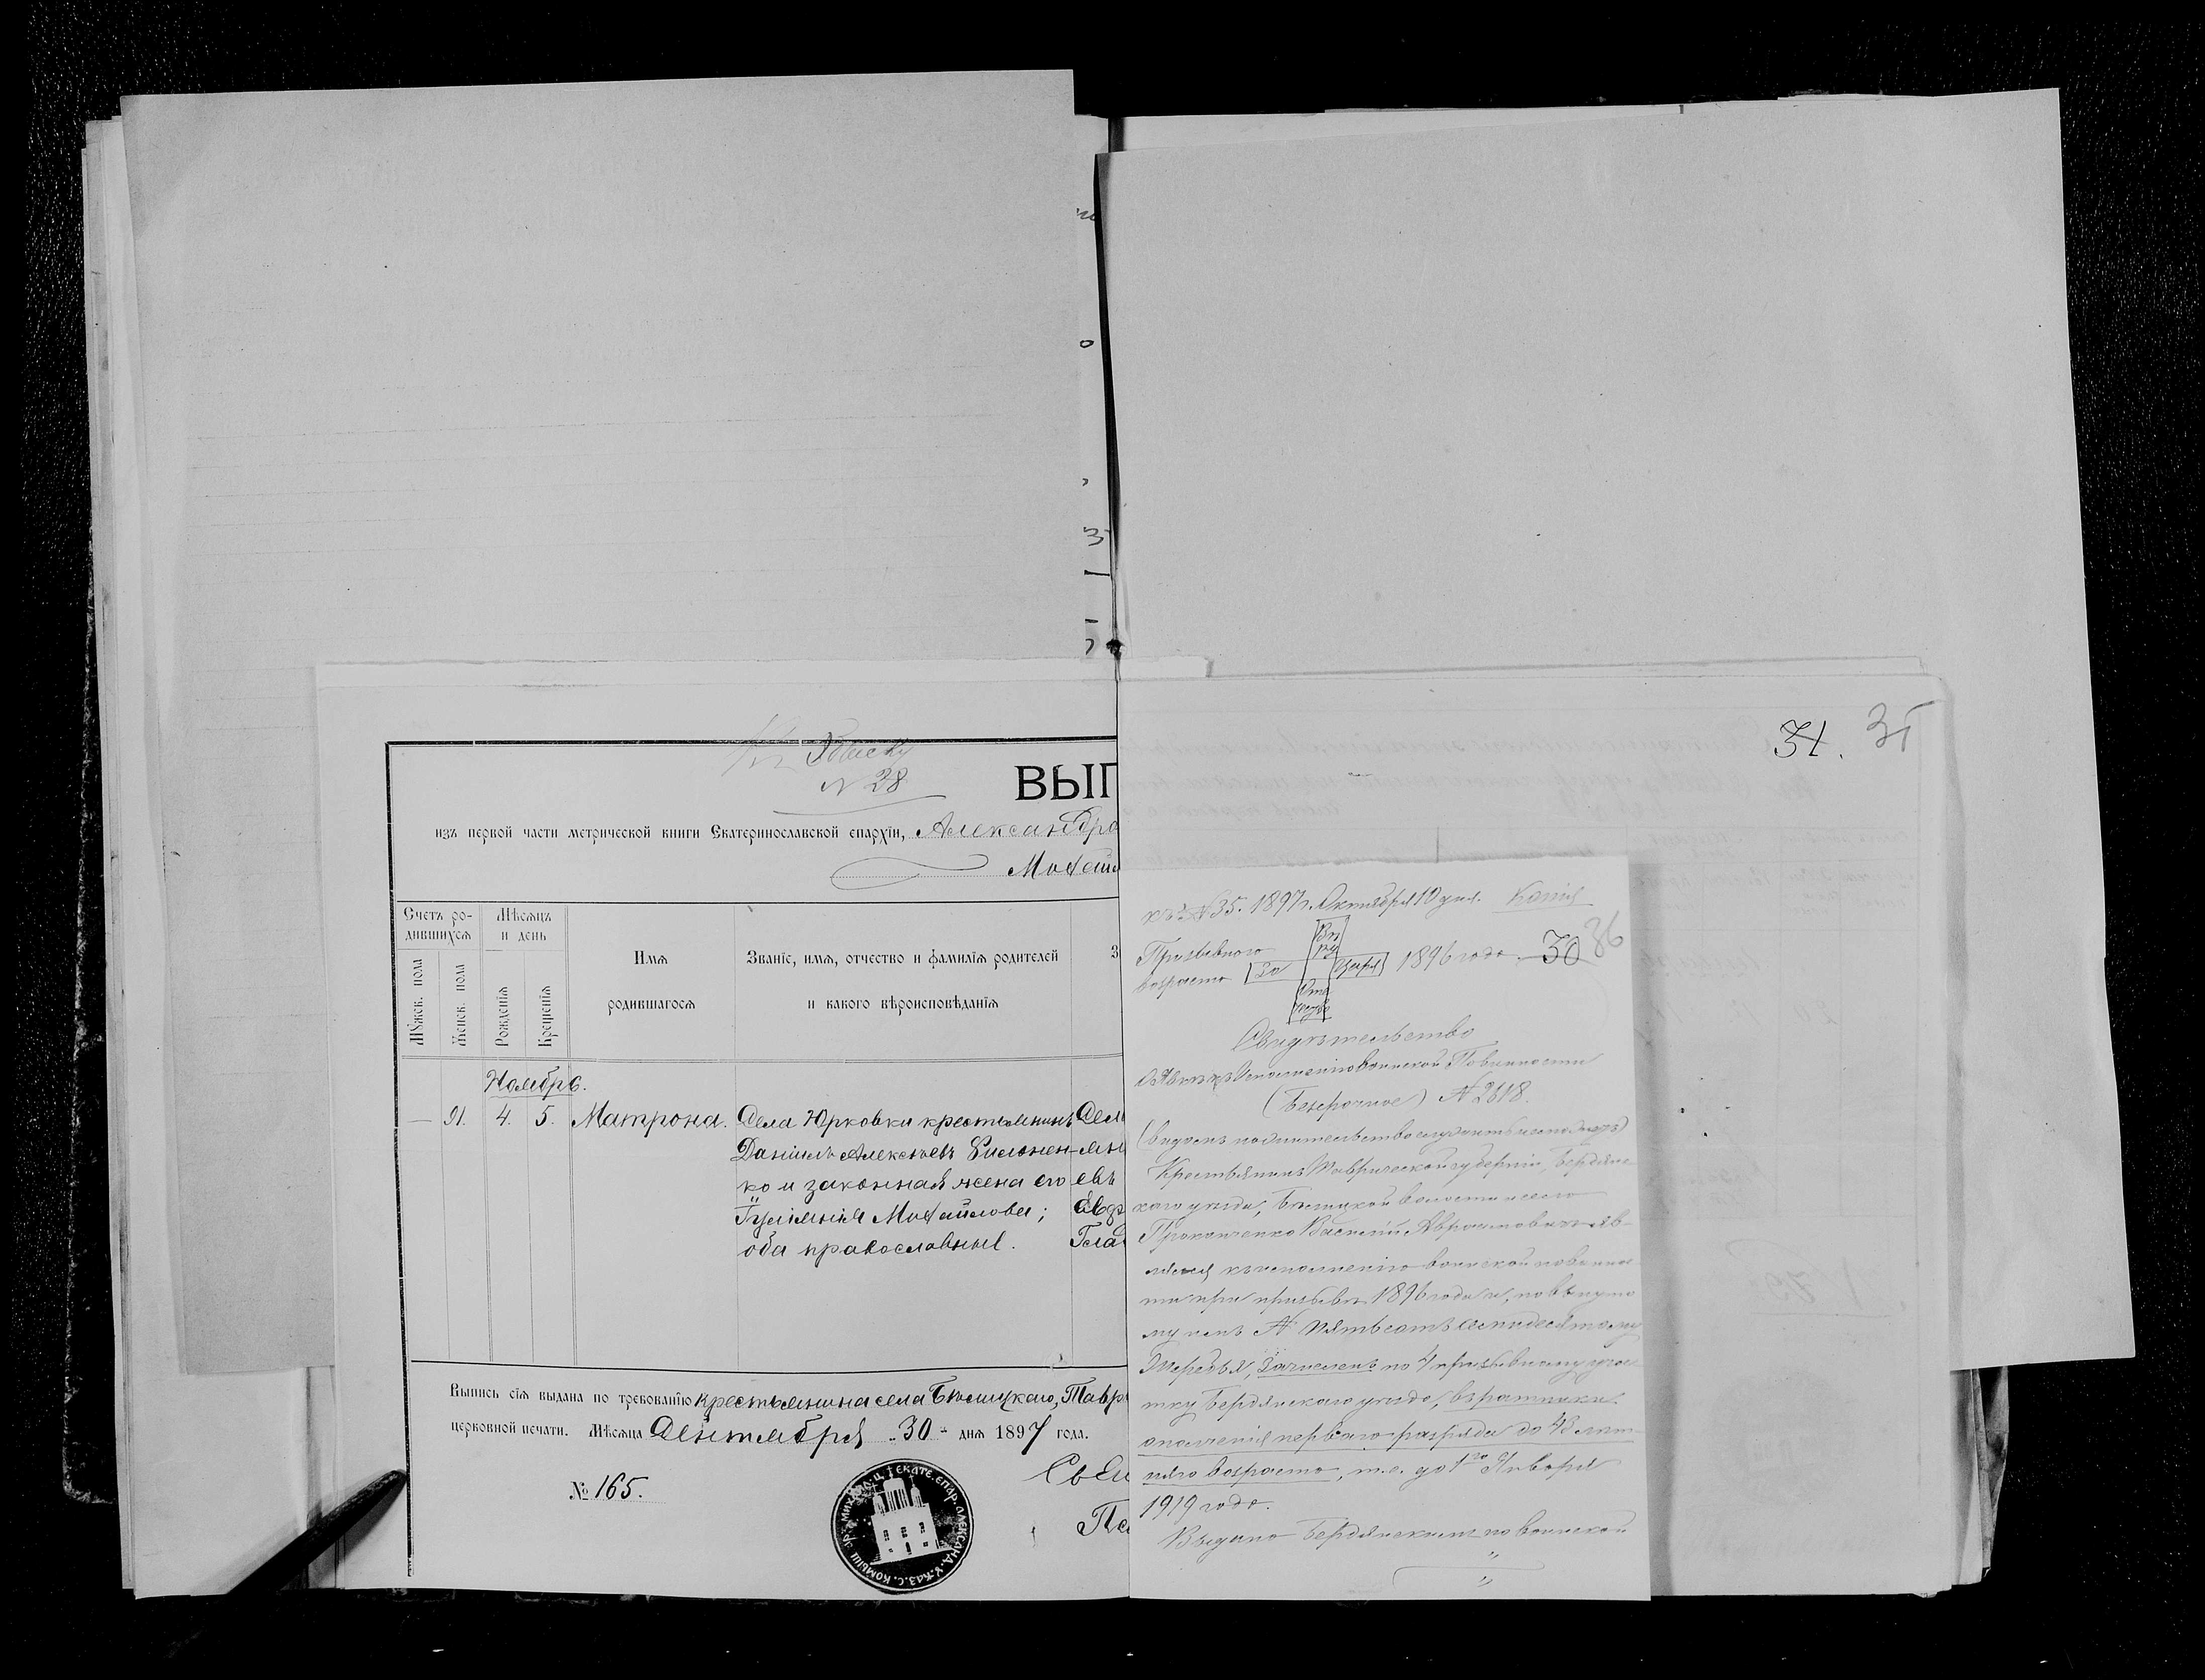 N 28
ВЫП
изъ первой части метрической книги Екатеринославской епархіи, Александро
Михайл
Счетъ ро-
дившихся
Мѣсяцъ
и день
Имя
родившагося
Званіе, имя, отчество и фамилія родителей
и какого вѣроисповѣданія
З
Мужеск. пола
Женск. пола
Рожденія
Крещенія
Ноябрь.
— 91. 4. 5. Матрона.
Села Юрковки крестьянинъ
Даніилъ Алексѣевъ
ко и законная жена его
Іуліянія Михайлова;
оба православные.
Села
евъ
Евф
Глад
Выпись сія выдана по требованію крестьянина села Бѣлицкаго, Тавр
церковной печати. Мѣсяца Сентября 30 дня 1897 года.
№ 165.
Свящ
Пс
31. 35
къ № 35. 1897 г. Октября 10 дня. Копія
Призывного
возраста
1896 года. 30 36
Свидѣтельство
о явкѣ къ исполненію воинской Повинности
(Безсрочное) № 2618.
(видомъ на жительство служить не можетъ)
Крестьянинъ Таврической губерніи, Бердянс-
каго уѣзда, волости и села
Прокопченко Василій Аврамовичъ яв-
лялся къ исполненію воинской повиннос-
ти при призывѣ 1896 года и, по вынуто-
му имъ № пятьсотъ семидесятому
жеребья, зачисленъ по 4 призывному учас-
тку Бердянскаго уѣзда, въ ратники
ополченія перваго разряда до 43 лѣт-
няго возраста, т.е. до 1го Января
1919 года.
Выдано Бердянскимъ по воинской